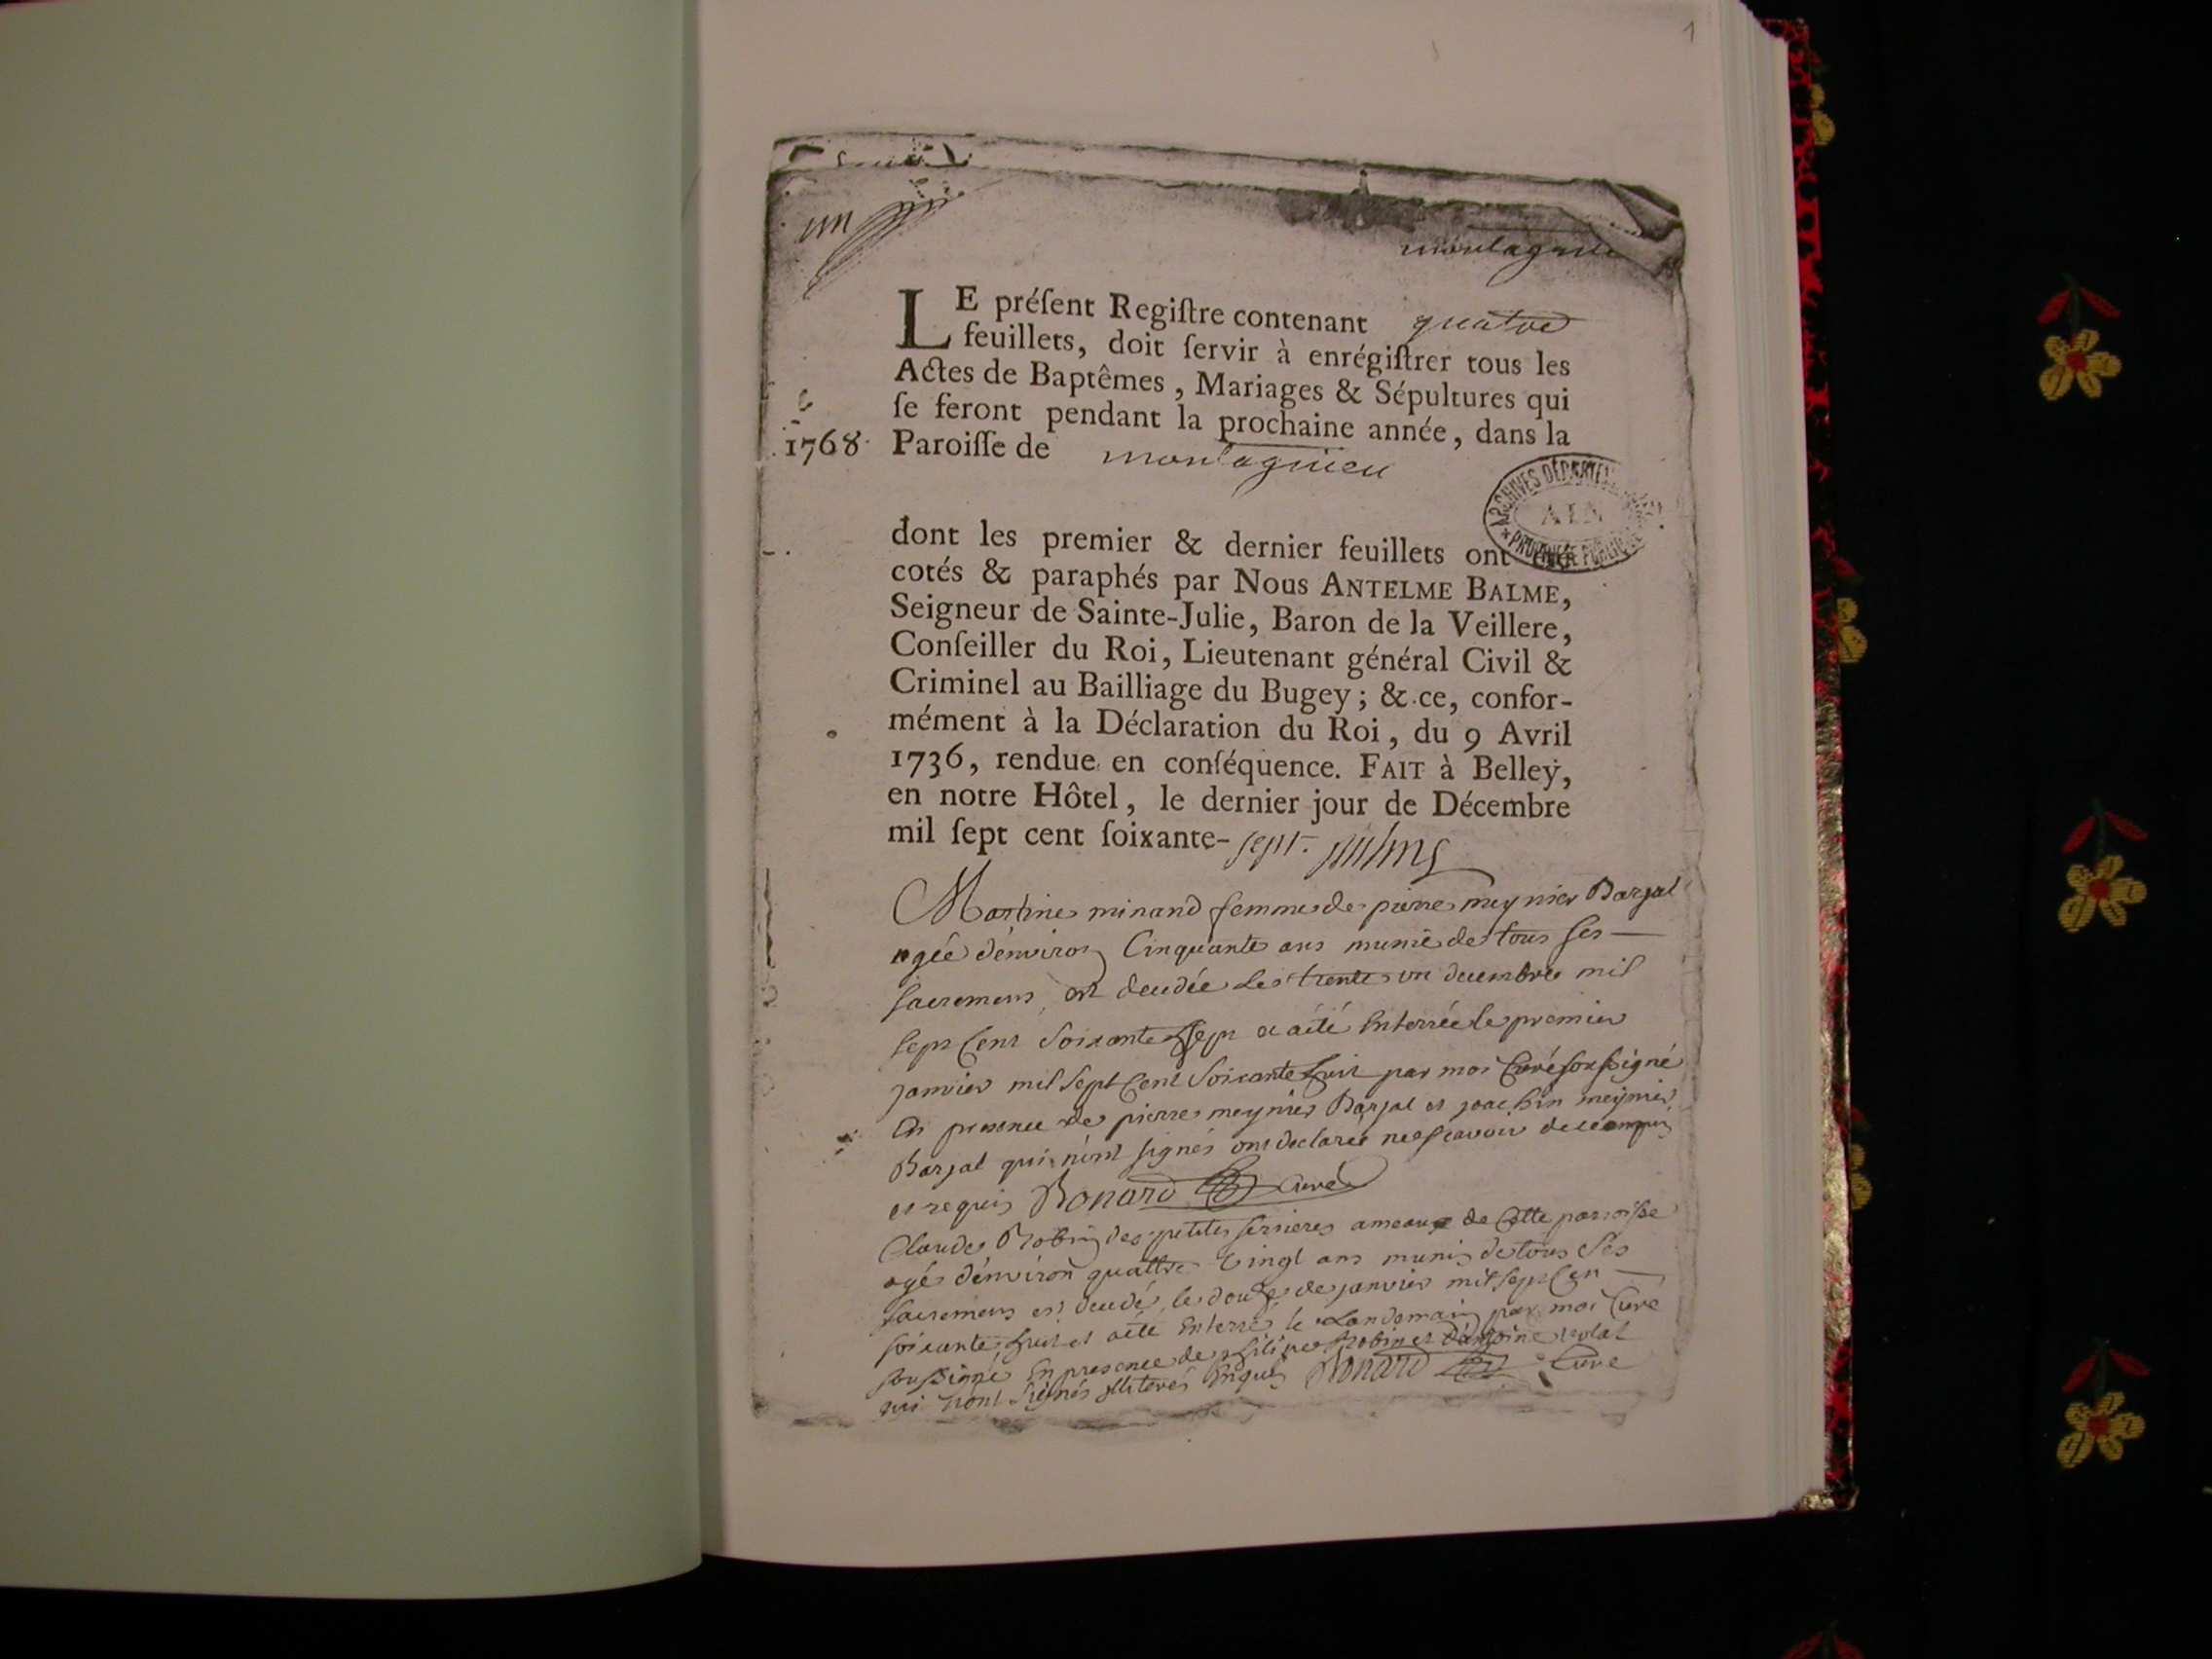 1
un
montagnieu
LE préſent Regiſtre contenant quatre
feuillets, doit ſervir à enrégiſtrer tous les
Actes de Baptêmes, Mariages & Sépultures qui
ſe feront pendant la prochaine année, dans la
1768. Paroiſſe de montagnieu
ARCHIVES DÉPARTEM
AIN
PROPRIÉTÉ PUBLIQUE
dont les premier & dernier feuillets ont été
cotés & paraphés par Nous ANTELME BALME,
Seigneur de Sainte-Julie, Baron de la Veillere,
Conſeiller du Roi, Lieutenant général Civil &
Criminel au Bailliage du Bugey; & ce, confor-
mément à la Déclaration du Roi, du 9 Avril
1736, rendue en conſéquence. FAIT à Belley,
en notre Hôtel, le dernier jour de Décembre
mil ſept cent ſoixante-sept.
Martine minand femme de pierre meynier Barjat
agée d'environ Cinquante ans munie de tous ses
sacremens est decedée le trente un decembre mil
sept Cent soixante sept et a été Enterrée le premier
janvier mil sept Cent soixante huit par moi Curé soussigné
En presence de pierre meynier Barjat et joachin meynier
Barjat qui n'ont signés ont declaré ne sçavoir de ce enquis
et requis Bonard Curé
Claude Robin des petites serrieres ameaux de Cette parroisse
agé d'environ quattre vingt ans munis de tous ses
sacremens est decedé le douze de janvier mil sept Cen
soixante huit et a été Enterré le Landemain par moi Curé
soussigné En presence de philipe Robin et d'antoine
qui n'ont signés illiterés Enquis Bonard Curé